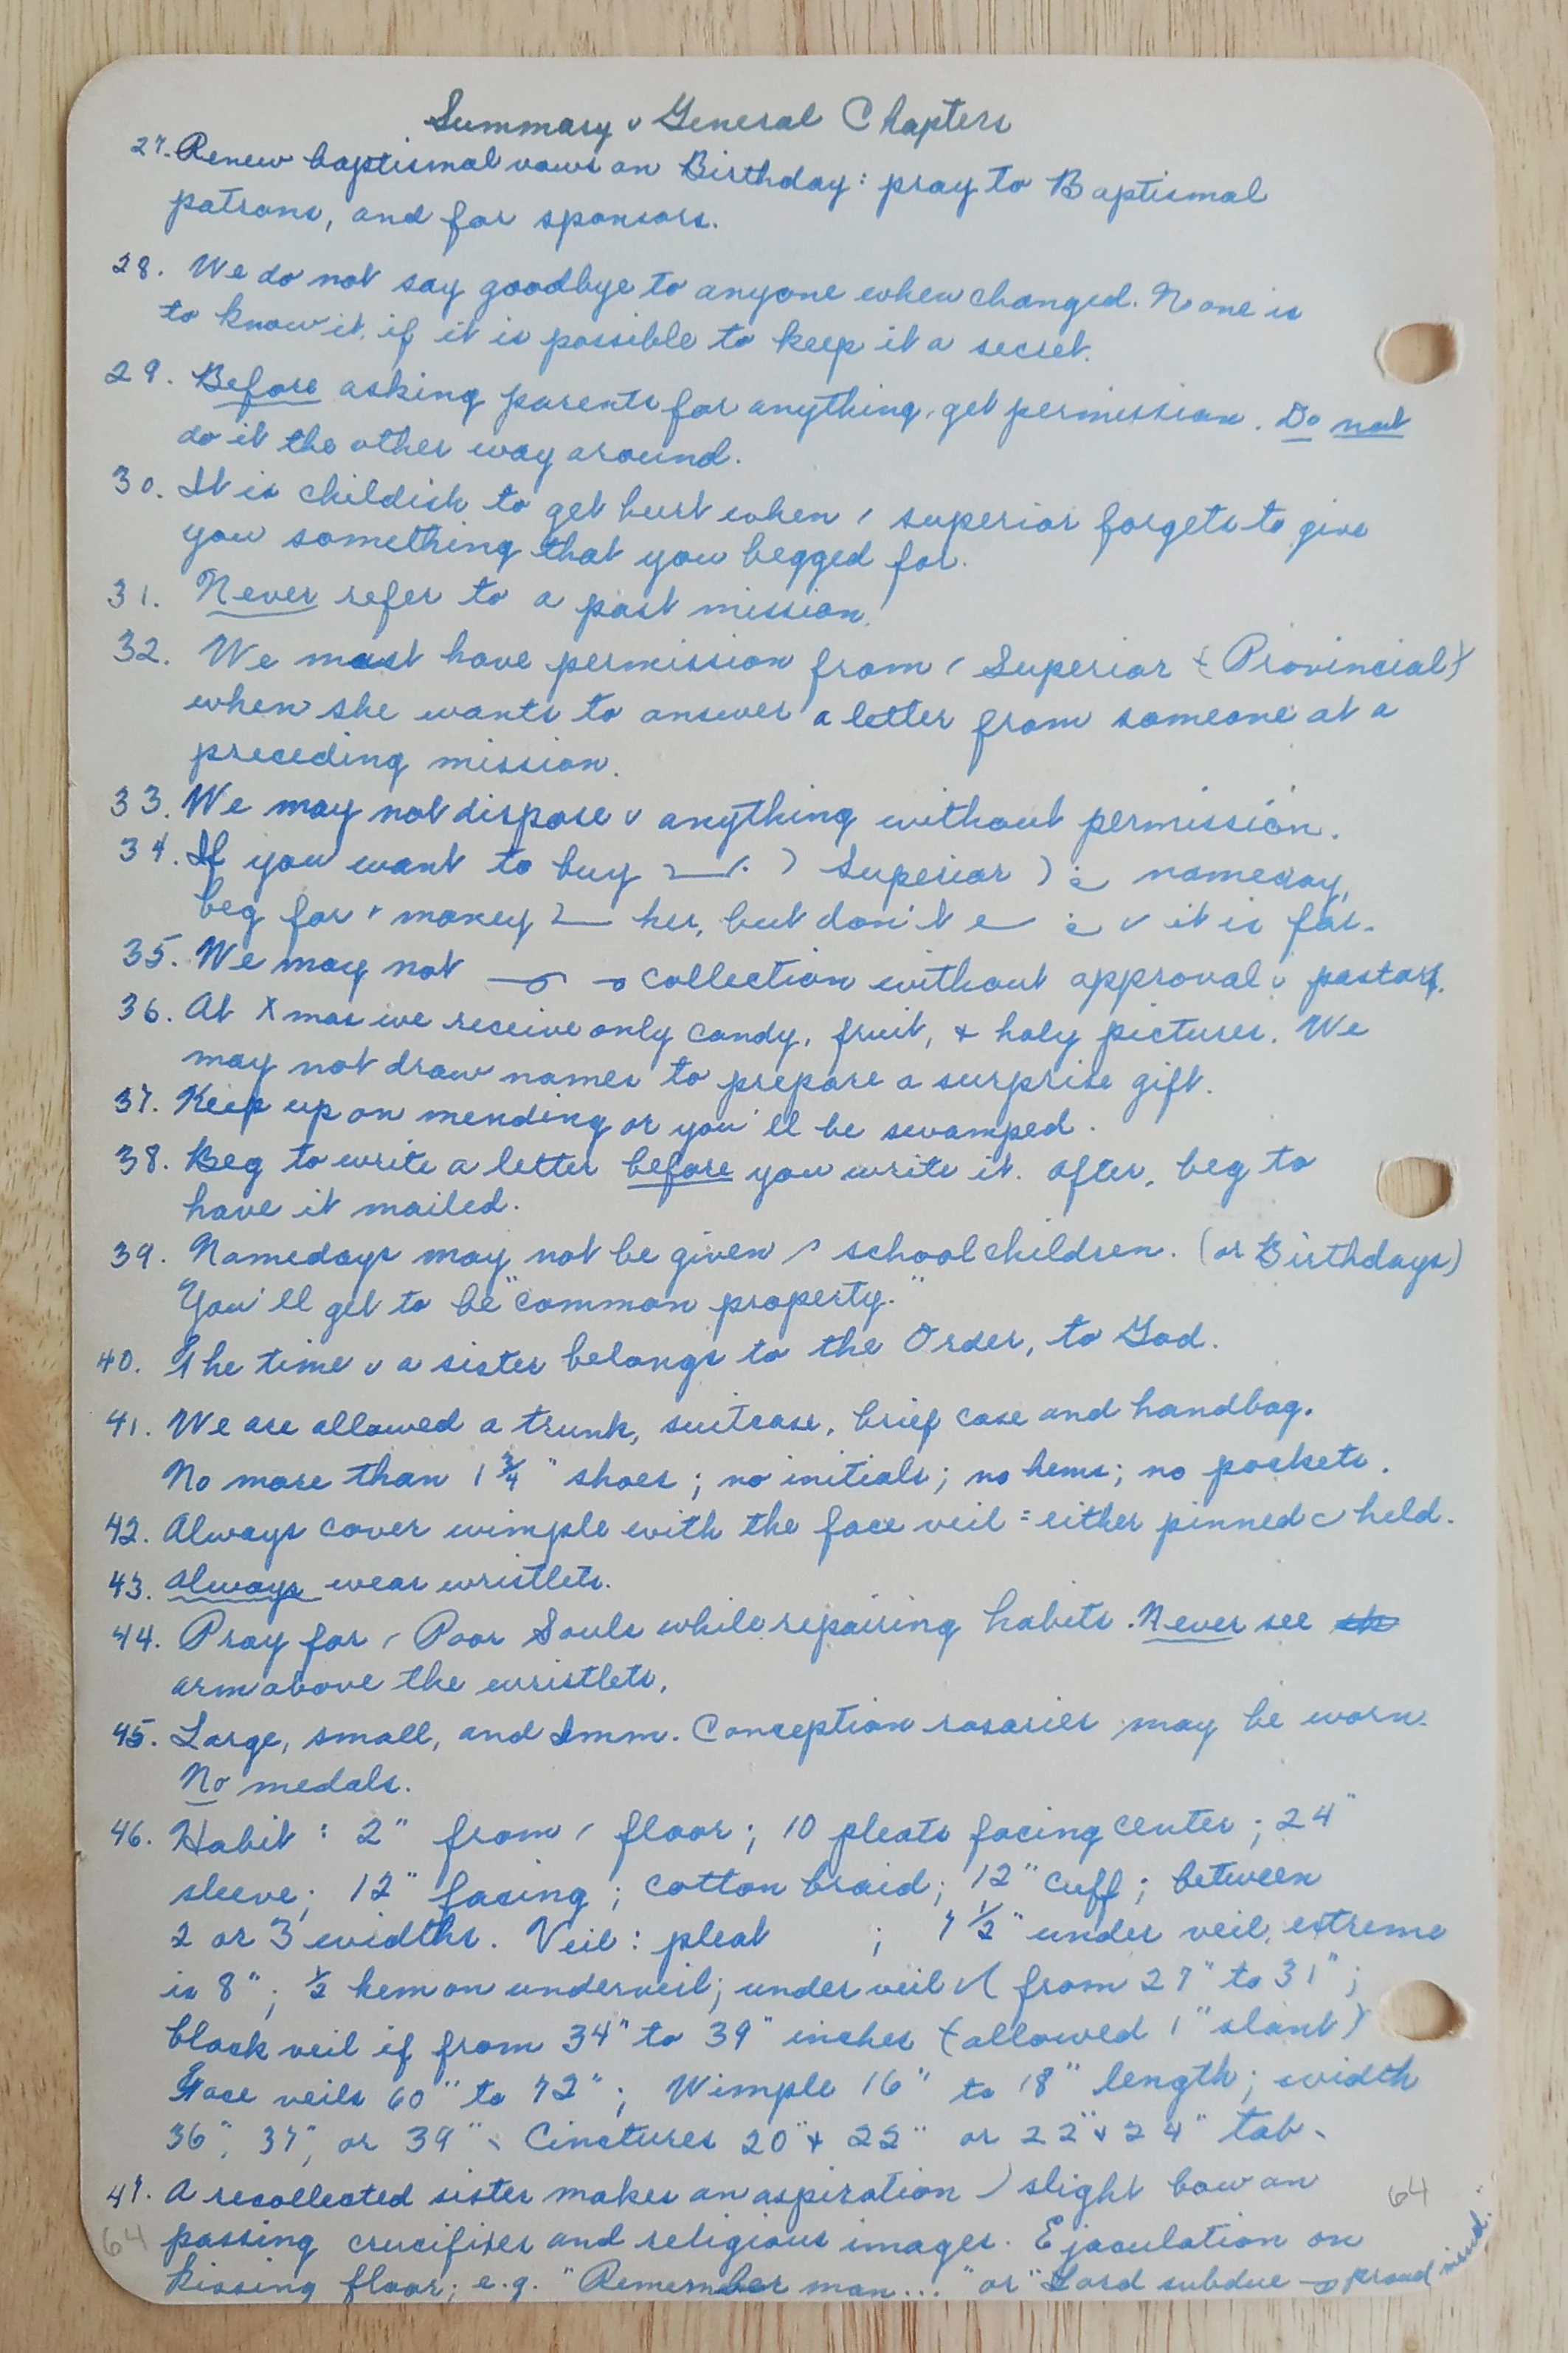 Summary v General Chapters
27. Renew baptismal vows on Birthday: pray to Baptismal
patrons, and for sponsors.
28. We do not say goodbye to anyone when changed. No one is
to know it, if it is possible to keep it a secret.
29. Before asking parents for anything, get permission. Do not
do it the other way around.
30. It is childish to get hurt when superior forgets to give
you something that you begged for.
31. Never refer to a past mission!
32. We must have permission from Superior (Provincial)
when she wants to answer a letter from someone at a
preceding mission.
33. We may not dispose v anything without permission.
34. If you want to buy Superior nameday,
beg for money her, but don't it is for.
35. We may not collection without approval v pastors.
36. At Xmas we receive only candy, fruit, + holy pictures. We
may not draw names to prepare a surprise gift.
37. Keep up on mending or you'll be swamped.
38. Beg to write a letter before you write it. After, beg to
have it mailed.
39. Namedays may not be given school children. (or Birthdays)
You'll get to be "common property."
40. The time v a sister belongs to the Order, to God.
41. We are allowed a trunk, suitcase, brief case and handbag.
No more than 1 3/4" shoes; no initials; no hems; no pockets.
42. Always cover wimple with the face veil = either pinned held.
43. Always wear wristlets.
44. Pray for Poor Souls while repairing habits. Never see
arm above the wristlets.
45. Large, small, and Imm. Conception rosaries may be worn.
No medals.
46. Habit: 2" from floor; 10 pleats facing center; 24"
sleeve; 12" facing; cotton braid; 12" cuff; between
2 or 3 widths. Veil: pleat ; 7 1/2" under veil, extreme
is 8"; 1/2 hem on underveil; under veil from 27" to 31";
black veil if from 34" to 39" inches (allowed 1" slant)
Face veils 60" to 72"; Wimple 16" to 18" length; width
36", 37", or 39". Cinctures 20" + 22" or 22" + 24" tab.
47. A recollected sister makes an aspiration slight bow on
64
passing crucifixes and religious images. Ejaculation on
64
kissing floor; e.g. "Remember man..." or "Lord subdue proud mind."